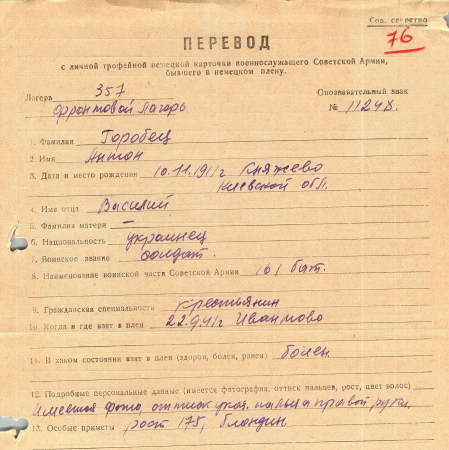 Сов. секретно
76
ПЕРЕВОД
с личной трофейной немецкой карточки военнослужащего Советской Армии,
бывшего в немецком плену.
Лагерь 357
фронтовой лагерь
Опознавательный знак
№ 11248.
1. Фамилия Горобец
2. Имя Антон
3. Дата и место рождения 10.11.1911г Княжево
Киевской обл.
4. Имя отца Василий
5. Фамилия матери —
6. Национальность украинец
7. Воинское звание солдат.
8. Наименование воинской части Советской Армии 161 бат.
9. Гражданская специальность крестьянин
10. Когда и где взят в плен 22.9.41г Иванково
11. В каком состоянии взят в плен (здоров, болен, ранен) болен.
12. Подробные персональные данные (имеется фотография, оттиск пальцев, рост, цвет волос)
Имеется фото, оттиск указ. пальца правой руки,
13. Особые приметы рост 175, блондин